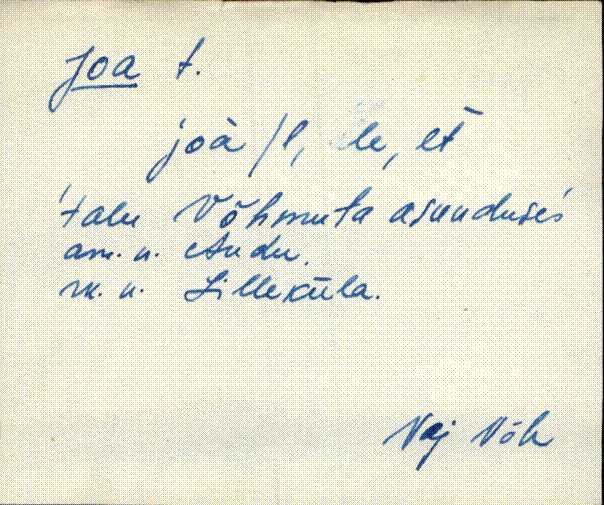 Joa t.
joà /l, le, lt
'talu Võhmuta asunduses'
am. n. Andu.
m. n. Lilleküla.
Vaj Võh